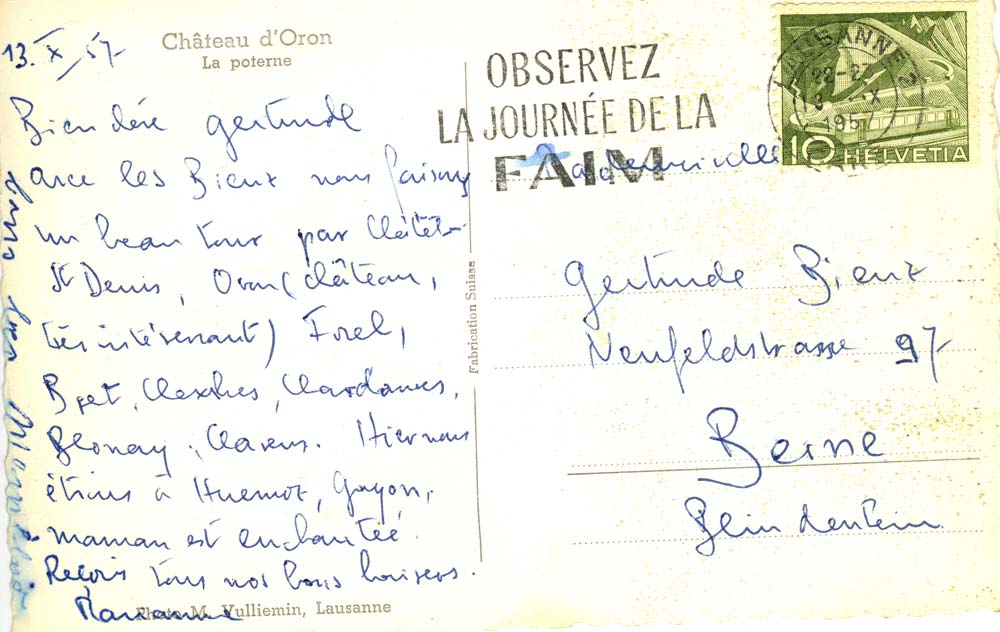 13. X. 57
Château d'Oron
La poterne
Bien chère Gertrude
avec les Bieux nous faisons
un beau tour par Châtel-
St Denis, Oron (château,
très intéressant) Forel,
Bret, Chexbres, Chardonnes,
Blonay, Clarens. Hier nous
étions à Huemoz, Gryon,
maman est enchantée.
Reçois tous nos bons baisers.
Marianne
Photo M. Vulliemin, Lausanne
Fabrication Suisse
OBSERVEZ
LA JOURNÉE DE LA
FAIM
LAUSANNE 2
22-23
13 X
1957
10 HELVETIA
Mademoiselle
Gertrude Bieux
Neufeldstrasse 97
Berne